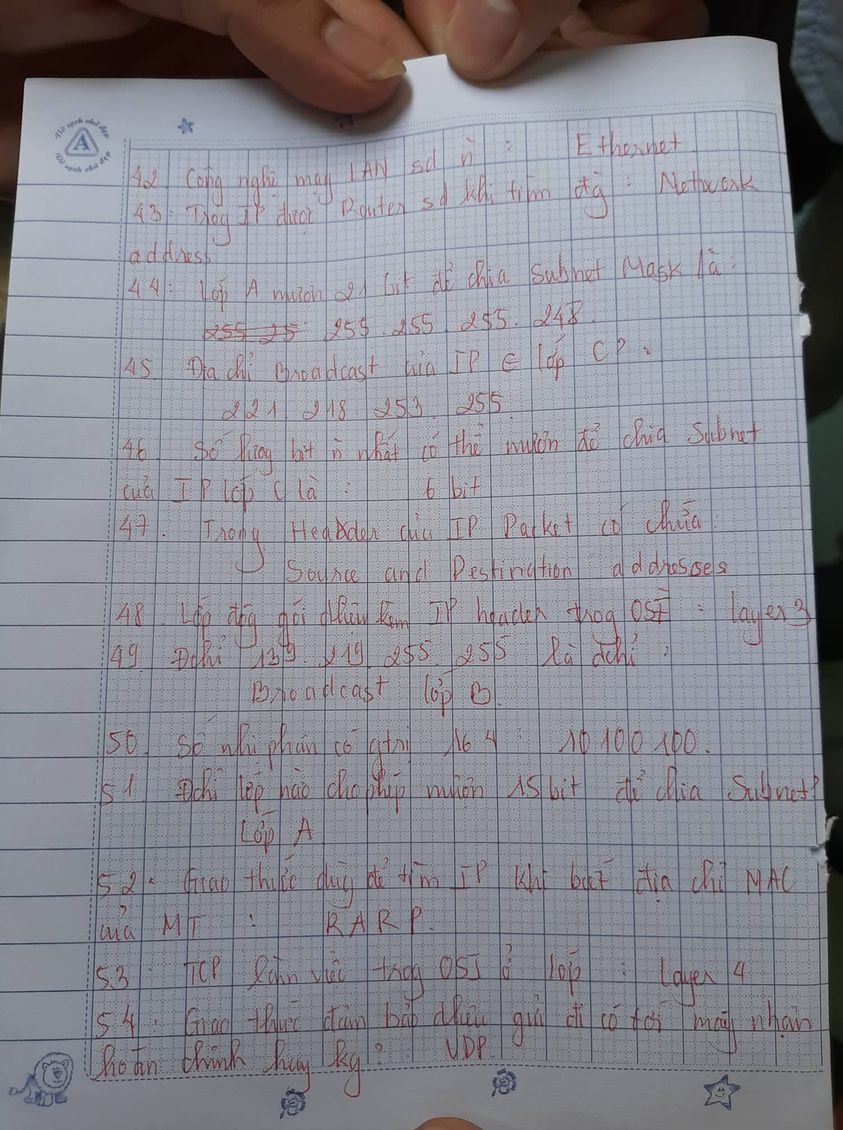 Vở sạch chữ đẹp
A
Vở sạch chữ đẹp
42. Công nghệ mạg LAN sd là : Ethernet
43. Trog IP được Router sd khi tìm đg : Network
address
44. Lớp A mượn 21 bit để chia Subnet Mask là :
255 25 255. 255. 255. 248
45. Địa chỉ Broadcast của IP ∈ lớp C? :
221 218 253. 255
46. Số lượg bit n nhất có thể mượn để chia Subnet
của IP lớp C là : 6 bit
47. Trong Header của IP Packet có chứa :
Source and Destination addresses
48. Lớp đóg gói kèm IP header trog OSI : layer 3
49. Đchỉ 139. 219. 255. 255 là đchỉ :
Broadcast lớp B.
50. Số nhị phân có gtrị 164 : 10100100.
51. Đchỉ lớp nào cho phép mượn 15 bit để chia Subnet?
Lớp A
52. Giao thức dùg để tìm IP khi biết địa chỉ MAC
của MT : RARP.
53. TCP làm việc trog OSI ở lớp : Layer 4
54. Giao thức đảm bảo gửi đi có tới máy nhận
hoàn chỉnh hay kg? UDP